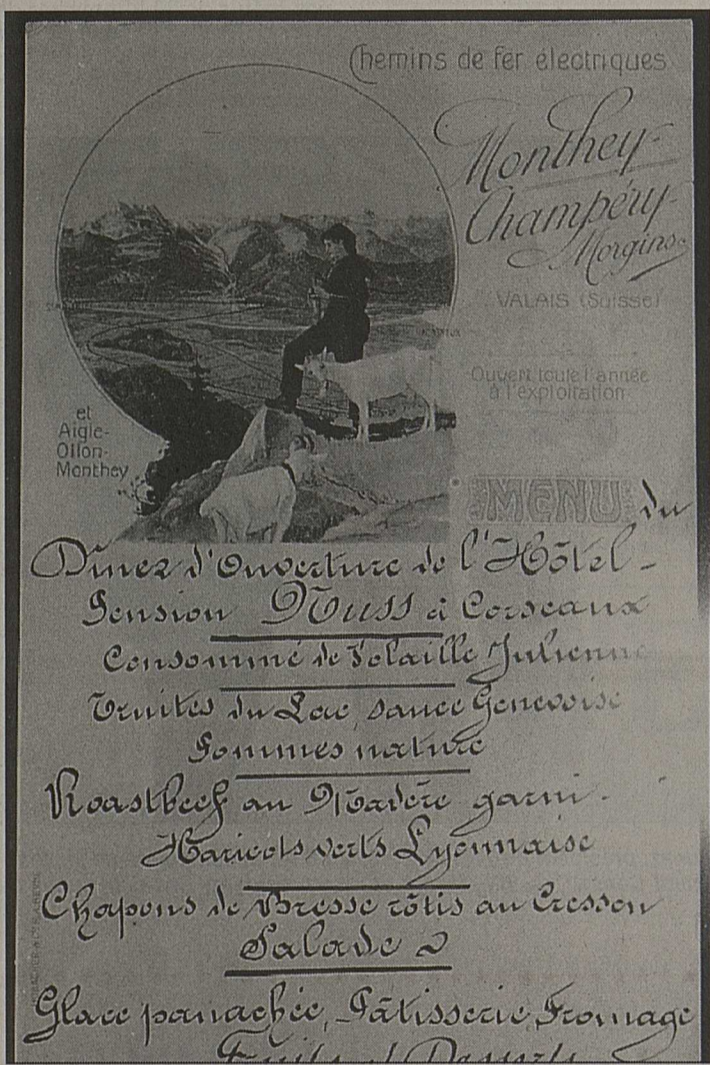 Chemins de fer électriques
Monthey-
Champéry-
Morgins.
VALAIS (Suisse)
Ouvert toute l'année
à l'exploitation
et
Aigle-
Ollon-
Monthey
MENU du
Diner d'Ouverture de l'Hôtel-
Pension Nuss à Corseaux
Consommé de Volaille Julienne
Truites du Lac, sauce Genevoise
Pommes nature
Roastbeef au Madère garni.
Haricots verts Lyonnaise
Chapons de Bresse rôtis au Cresson
Salade
Glace panachée, Pâtisserie, Fromage
Fruits et Desserts